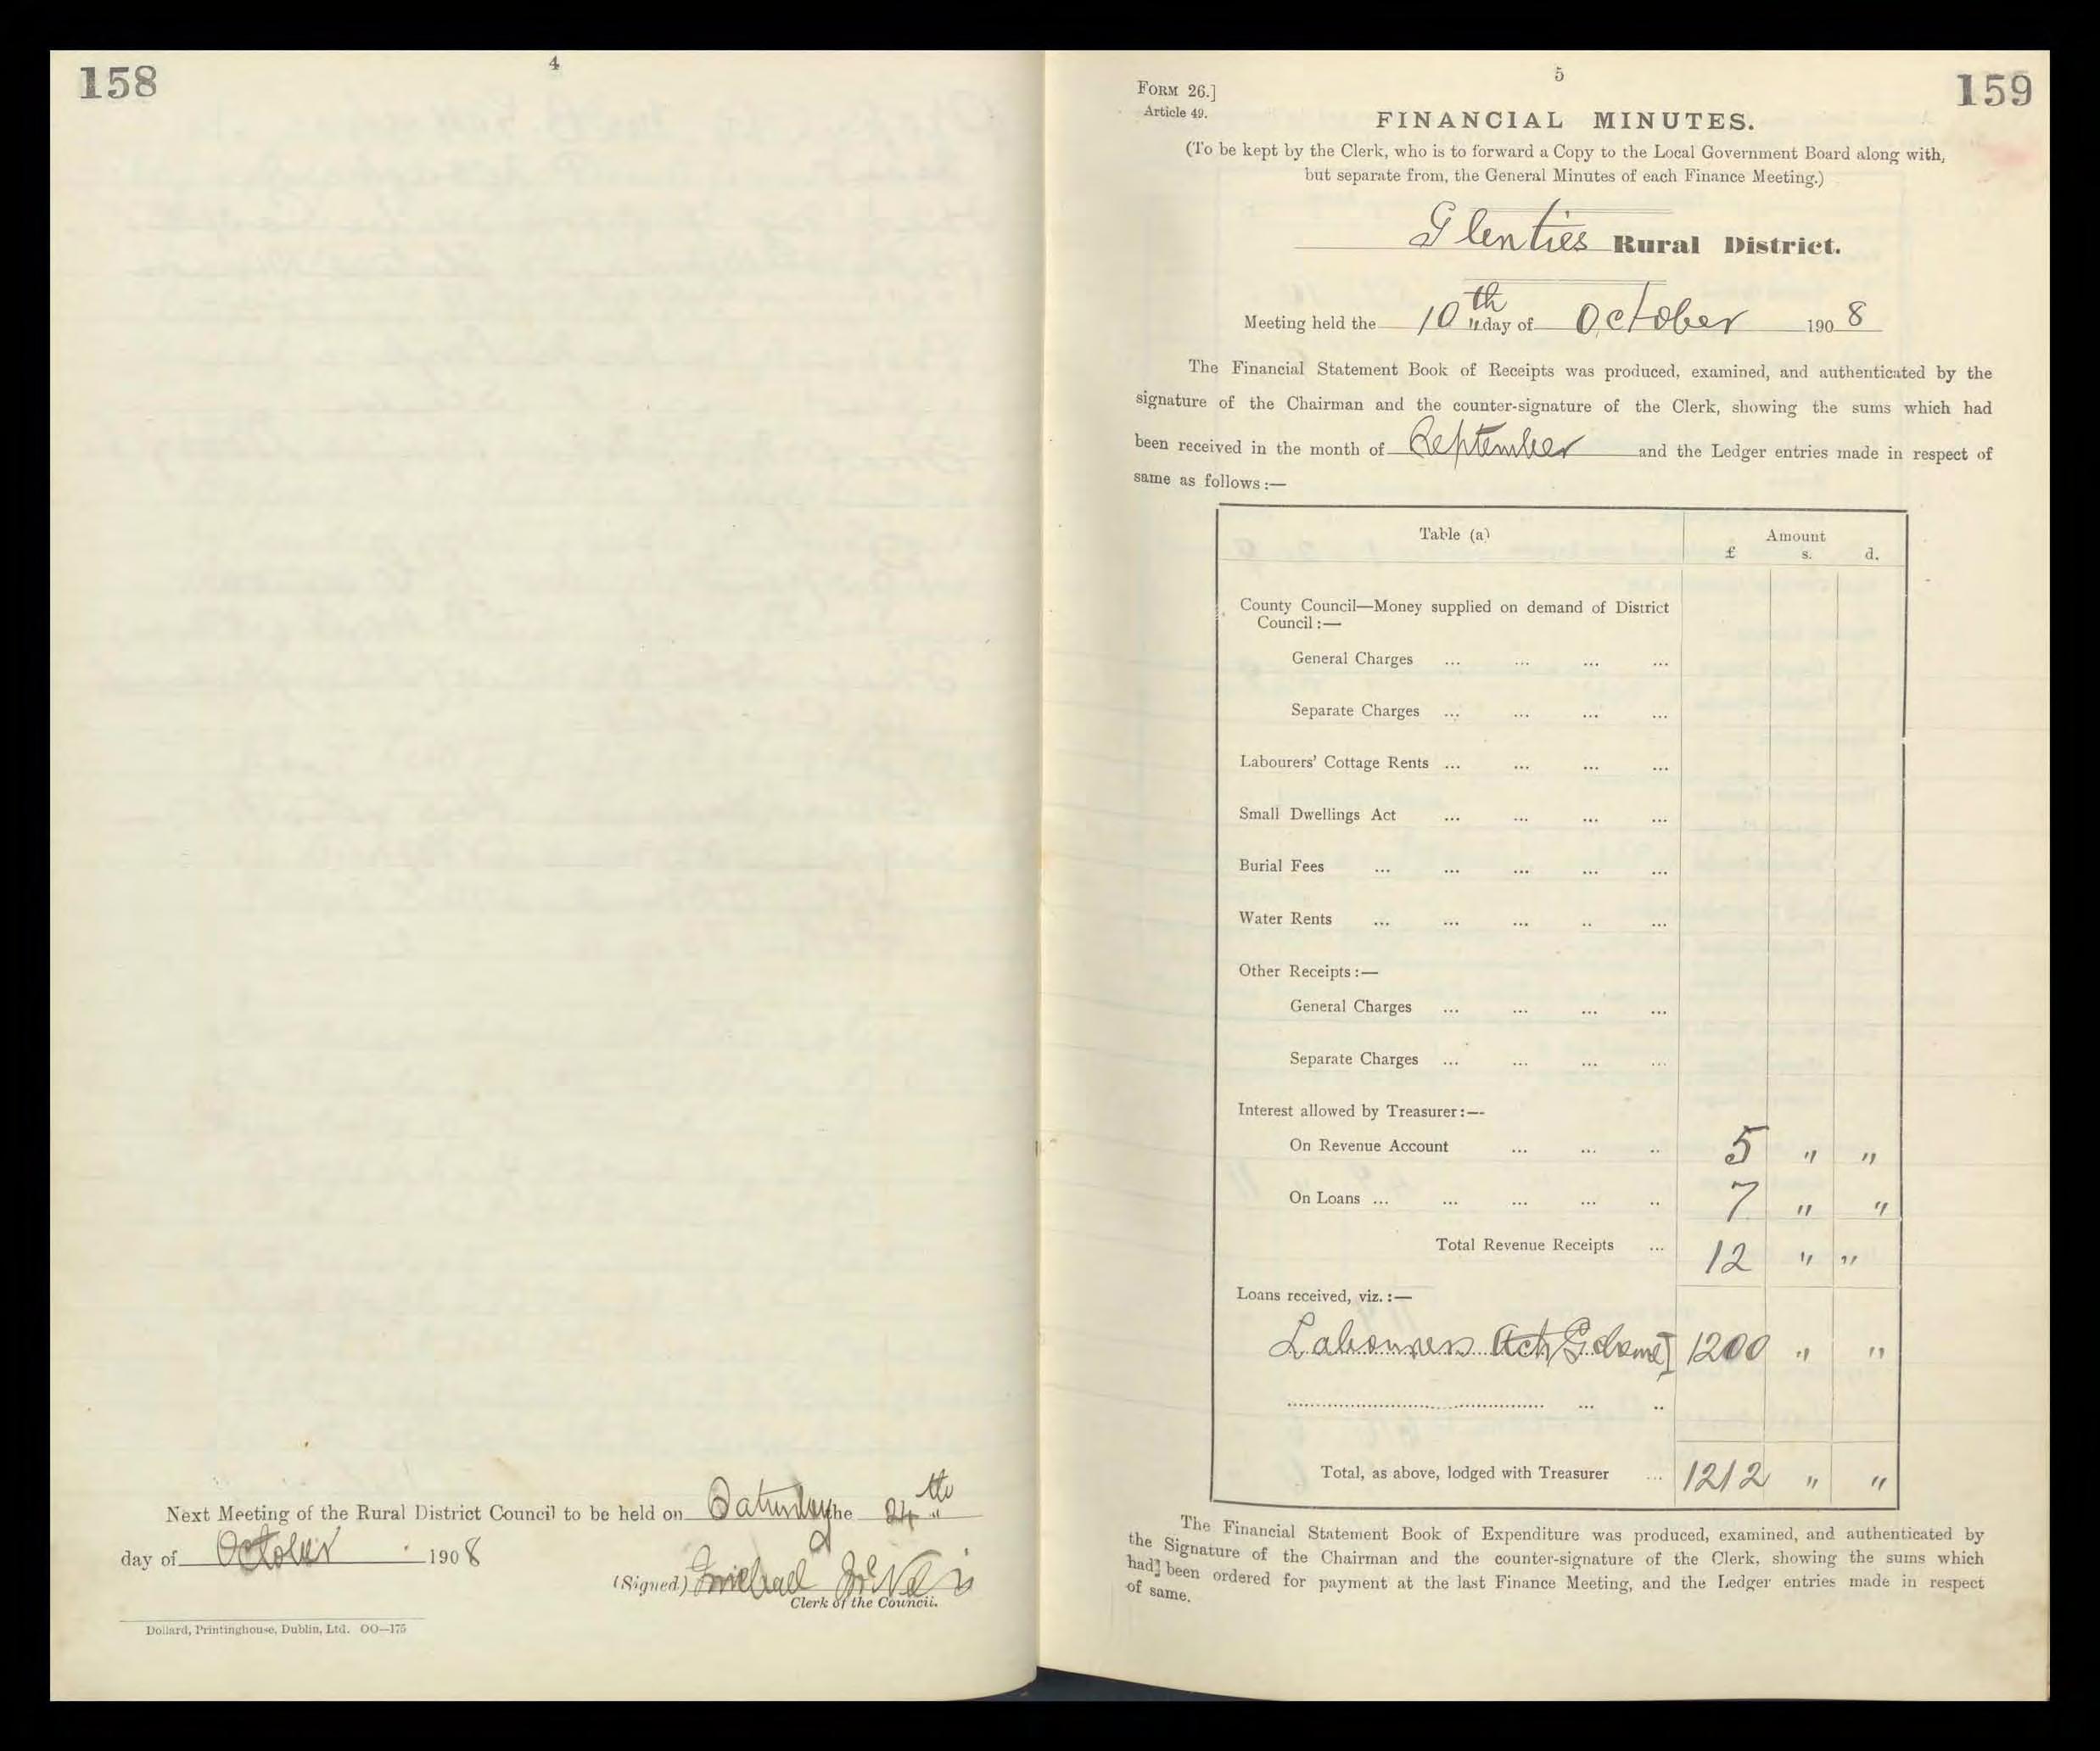 158
4
Next Meeting of the Rural District Council to be held on Saturday the 24th
day of October 1908
(Signed) Michael McNelis
Clerk of the Council.
Dollard, Printinghouse, Dublin, Ltd. OO—175
5
159
FORM 26.]
Article 49.
FINANCIAL MINUTES.
(To be kept by the Clerk, who is to forward a Copy to the Local Government Board along with,
but separate from, the General Minutes of each Finance Meeting.)
Glenties Rural District.
Meeting held the 10th day of October 1908
The Financial Statement Book of Receipts was produced, examined, and authenticated by the
signature of the Chairman and the counter-signature of the Clerk, showing the sums which had
been received in the month of September and the Ledger entries made in respect of
same as follows:—
Table (a) Amount
£ s. d.
County Council—Money supplied on demand of District
Council:—
General Charges ... ... ... ...
Separate Charges ... ... ... ...
Labourers' Cottage Rents ... ... ... ...
Small Dwellings Act ... ... ... ...
Burial Fees ... ... ... ... ...
Water Rents ... ... ... .. ...
Other Receipts:—
General Charges ... ... ... ...
Separate Charges ... ... ... ...
Interest allowed by Treasurer:—
On Revenue Account ... ... .. 5 " "
On Loans ... ... ... ... .. 7 " "
Total Revenue Receipts ... 12 " "
Loans received, viz.:—
Labourers Act Scheme I 1200 " "
... ..
Total, as above, lodged with Treasurer ... 1212 " "
The Financial Statement Book of Expenditure was produced, examined, and authenticated by
the Signature of the Chairman and the counter-signature of the Clerk, showing the sums which
had] been ordered for payment at the last Finance Meeting, and the Ledger entries made in respect
of same.